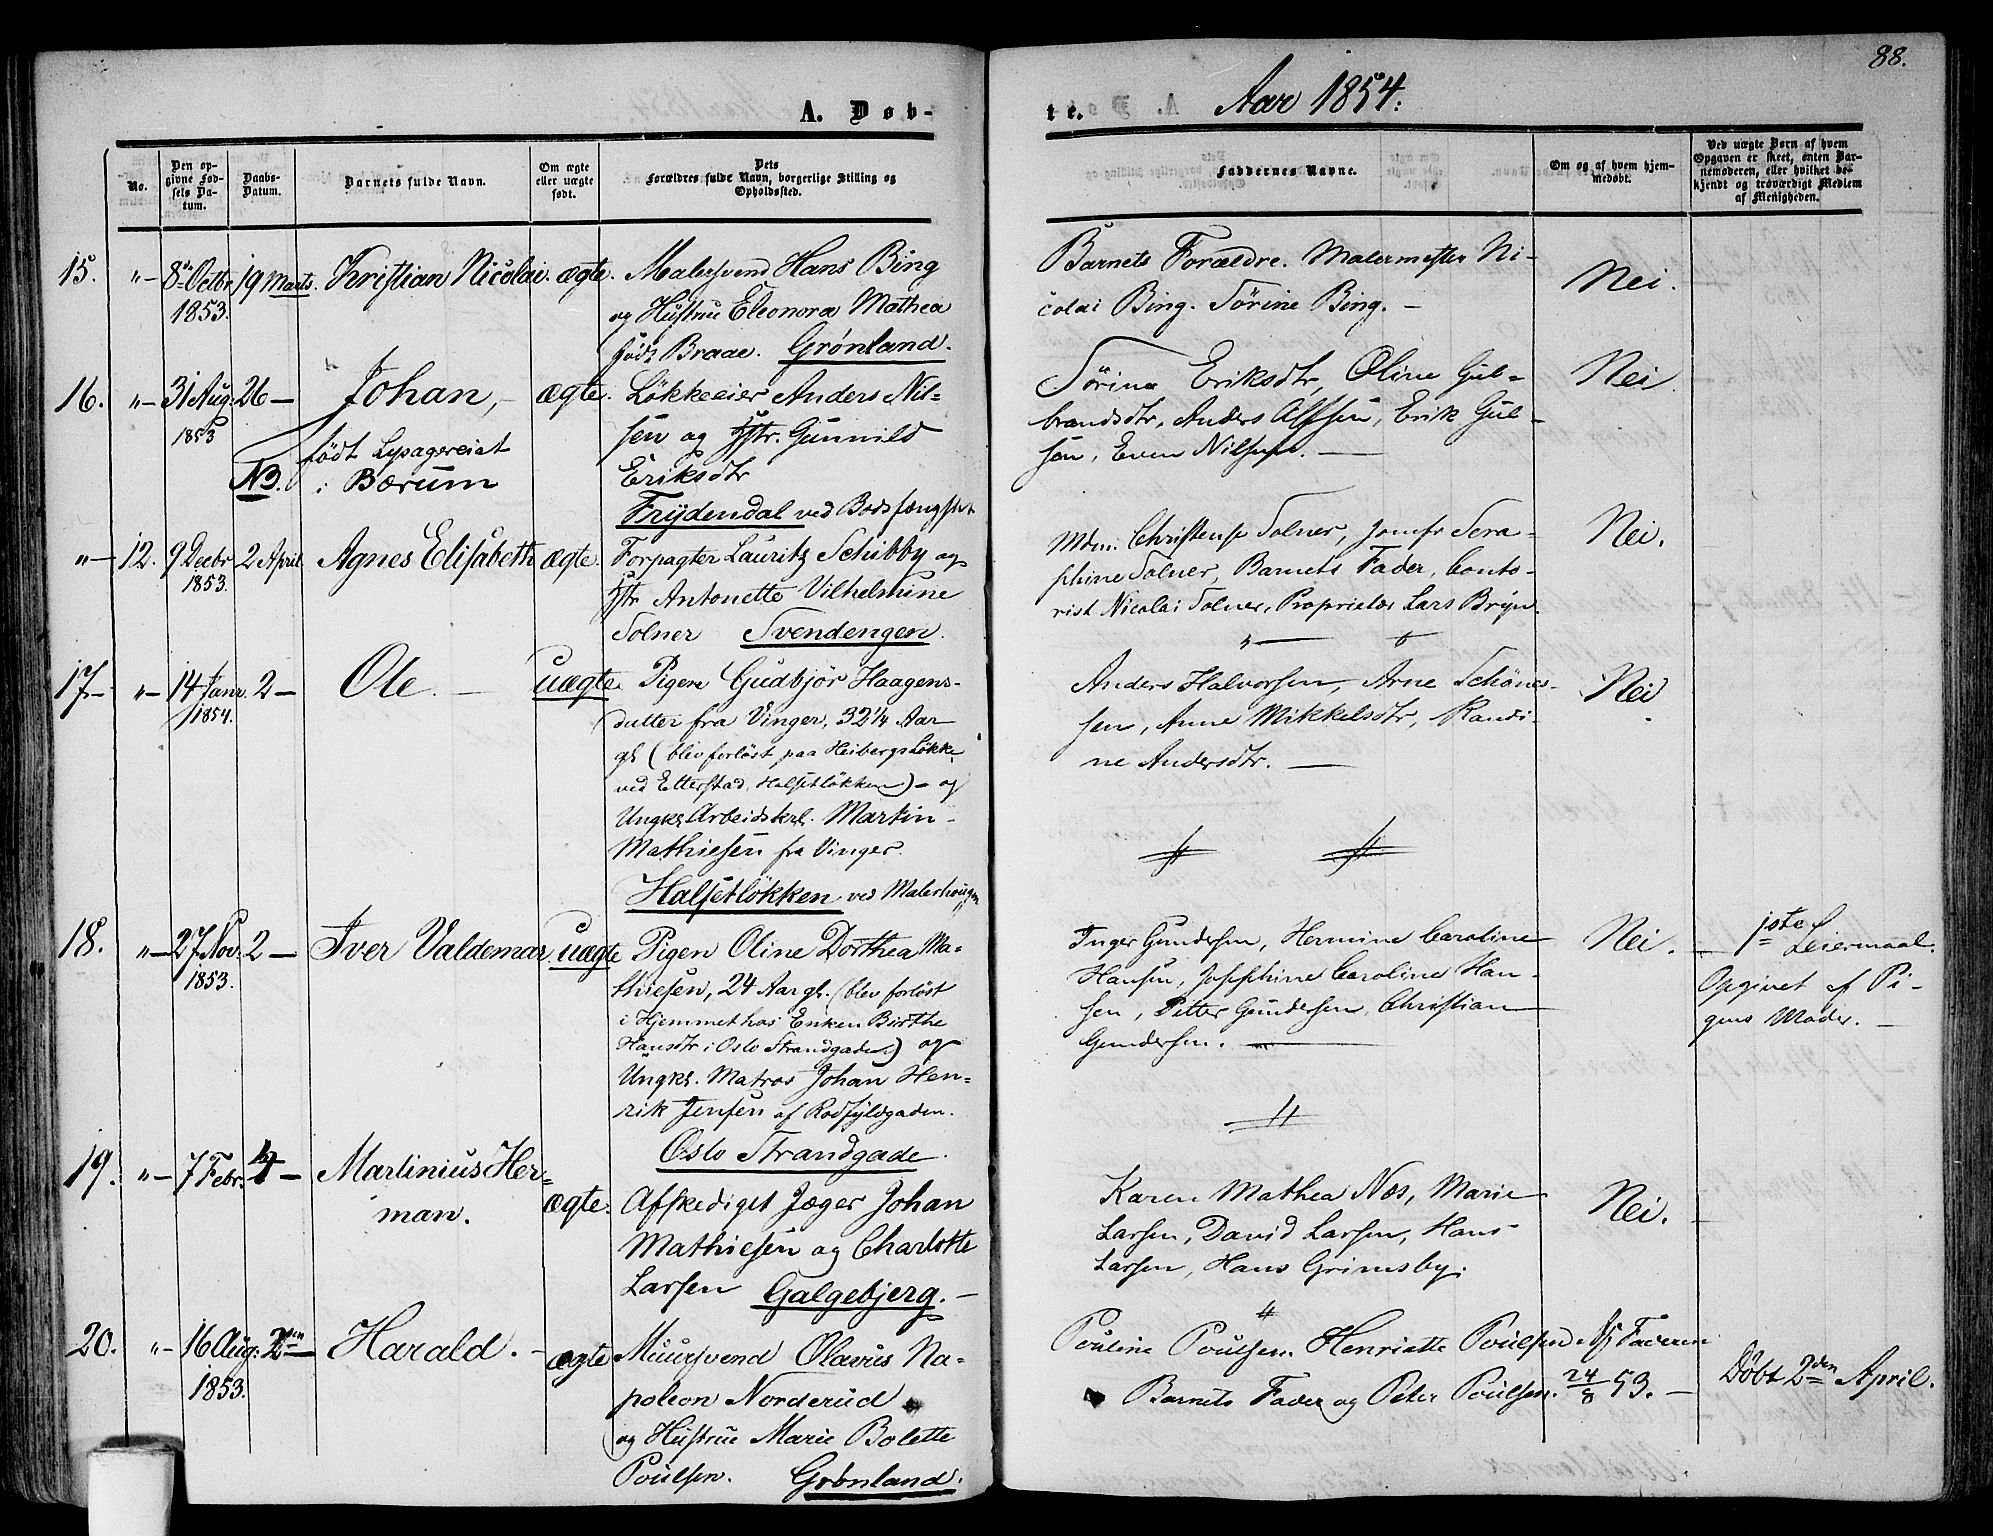 88.
A. Døb-
te.
Aar 1854.
No.
Den op-
givne Fød-
sels Da-
tum.
Daabs-
Datum.
Barnets fulde Navn.
Om ægte
eller uægte
født.
Dets
Forældres fulde Navn, borgerlige Stilling og
Opholdssted.
Faddernes Navne.
Om og af hvem hjem-
medøbt.
Ved uægte Børn af hvem
Opgaven er skeet, enten Bar-
nemoderen, eller hvilket be-
kjendt og troværdigt Medlem
af Menigheden.
15. "— 8de Octbr 19 Marts. Kristian Nicolai. ægte. Malersvend Hans Bing
1853. og Hustrue Eleonora Mathea
født Braae. Grønland.
Barnets Forældre. Malermester Ni-
colai Bing. Sørine Bing. —
Nei.
16. "— 31 Aug. 26 — Johan, — ægte. Løkkeeier Anders Nil-
1853 sen og Hstr. Gunnild
NB. født Lysagereiat Eriksdtr
i Bærum Frydendal ved Bodsfængslet
Sørine Eriksdtr, Oline Gul-
brandsdtr, Anders Alfsen, Erik Gul-
sen, Even Nilsen. —
Nei.
"— 12. 9 Decbr 2 April Agnes Elisabeth ægte. Forpagter Lauritz Schibby og
1853. Hstr Antonette Vilhelmine
Solner Svendengen.
Mdm. Christense Solner, Jomfr Sera-
phine Solner, Barnets Fader, Conto-
rist Nicolai Solner, Proprietær Lars Bryn.
Nei.
17— "— 14 Janr. 2 — Ole. — uægte. Pigen Gudbjør Haagens-
1854. datter fra Vinger, 32 1/4 Aar
gl. (blev forløst paa Heibergs Løkke
ved Etterstad, Halsetløkken) — og
Ungk. Arbeidskrl. Martin
Mathiesen fra Vinger.
Halsetløkken ved Malerhougen
Anders Halvorsen, Arne Schönes-
sen, Anne Mikkelsdtr, Randi-
ne Andersdtr. —
Nei
18. "— 27 Nov. 2 — Iver Valdemar. uægte Pigen Oline Dorthea Ma-
1853. thiesen, 24 Aar gl. (blev forløst
i Hjemmet hos Enken Birthe
Hansdtr i Oslo Strandgade.) og
Ungk. Matros Johan Hen-
rik Jensen af Rødfyldgaden.
Oslo Strandgade.
Inger Gundersen, Hermine Caroline
Hansen, Josephine Caroline Han-
sen, Petter Gundersen, Christian
Gundersen. —
Nei.
1ste Leiermaal.
Opgivet af Pi-
gens Moder. —
19. "— 7 Febr. 4 — Martinius Her-
man. ægte. Afskediget Jæger Johan
Mathiesen og Charlotte
Larsen Galgebjerg. —
Karen Mathea Næs, Marie
Larsen, David Larsen, Hans
Larsen, Hans Grimsby.
Nei.
20. "— 16 Aug. 2den — Harald. — ægte Muursvend Olavus Na-
1853. poleon Norderud
og Hustrue Marie Bolette
Poulsen. Grønland.
Pouline Poulsen. Henriette Poulsen
Barnets Fader og Peter Poulsen.
Af Faderen
24/8 53. —
Døbt 2den April.